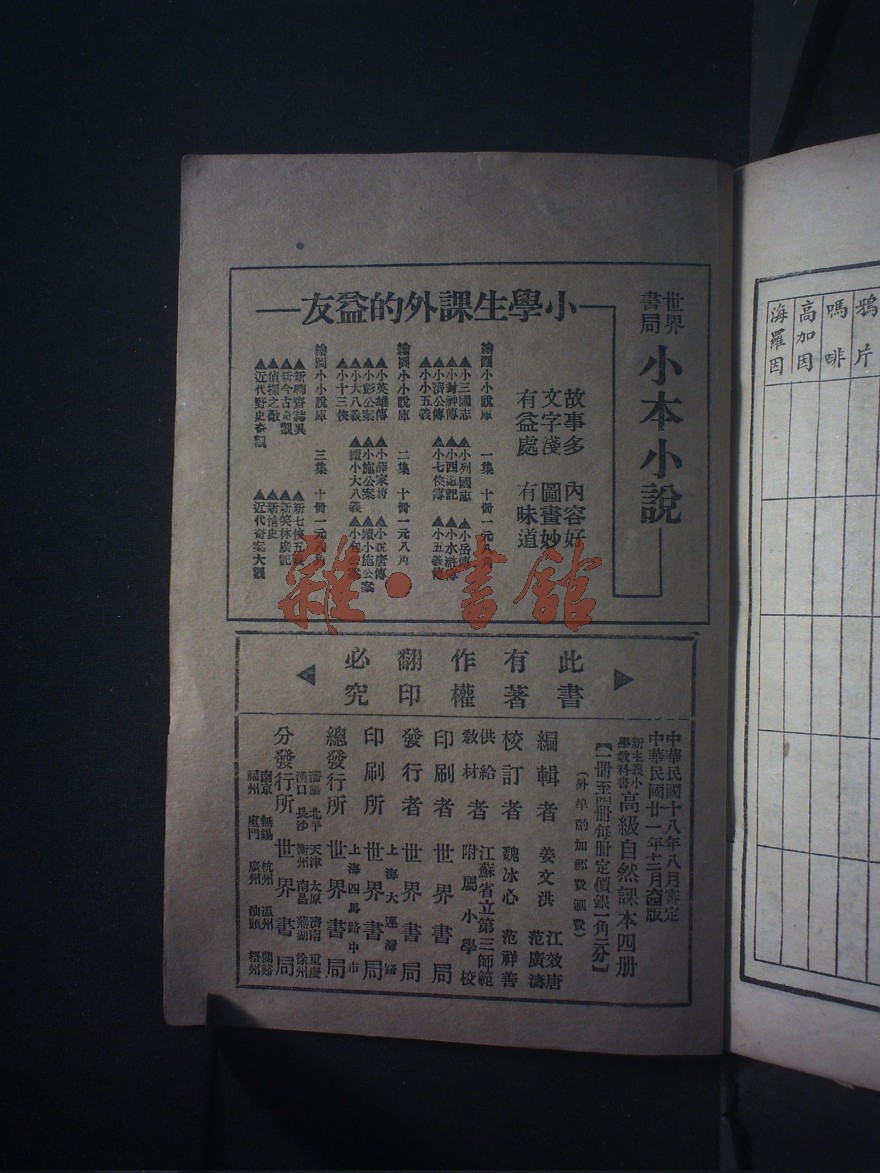 世界書局 小本小說
小學生課外的益友
故事多 內容好
文字淺 圖畫妙
有益處 有味道
繪圖小小說庫 一集 十冊一元八角
▲小三國志 ▲小列國志 ▲小岳傳
▲小封神傳 ▲小西遊記 ▲小水滸傳
▲小濟公傳 ▲小七俠傳 ▲小五義傳
▲小小五義
繪圖小小說庫 二集 十冊一元八角
▲小英雄傳 ▲小薛家將 ▲小說唐傳
▲小彭公案 ▲小施公案 ▲續小施公案
▲小大八義 ▲續小大八義 ▲小包公案
▲小十三俠
繪圖小小說庫 三集 十冊一元八角
▲新聊齋誌異 ▲新七俠五義
▲新今古奇觀 ▲新笑林廣記
▲偵探之敵 ▲新情史
▲近代野史奇觀 ▲近代奇案大觀
此書有著作權翻印必究
中華民國十八年八月審定
中華民國廿一年十二月版
新主義小學教科書 高級自然課本四册
【一冊至四冊每冊定價銀一角二分】
(外埠酌加郵費匯費)
編輯者 姜文洪 江效唐 范廣濤
校訂者 魏冰心 范祥善
供給教材者 江蘇省立第三師範附屬小學校
印刷者 世界書局
發行者 世界書局
印刷所 上海大連灣路 世界書局
總發行所 上海四馬路中市 世界書局
分發行所 瀋陽 北平 天津 太原 濟南 重慶
漢口 長沙 衡州 南昌 蕪湖 徐州
世界書局
南京 無錫 杭州 溫州 蘭谿
福州 廈門 廣州 汕頭 梧州
鴉片
嗎啡
高加因
海羅因
雜·書館